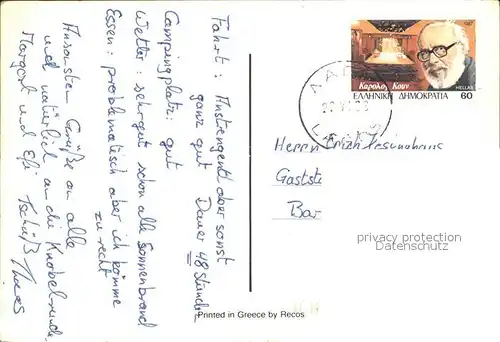 Fahrt: Anstrengend aber sonst
ganz gut Dauer 48 Stunden
Campingplatz: gut
Wetter: sehr gut schon alle Sonnenbrand
Essen: problematisch aber ich komme
zu recht
Ansonsten Grüße an alle
und natürlich an die Knobelrunde
Margot und Tschüß
1987
Κάρολος Κουν
HELLAS
ΕΛΛΗΝΙΚΗ ΔΗΜΟΚΡΑΤΙΑ 60
Herrn Erich
Gastst
Bar
privacy protection
Datenschutz
Printed in Greece by Recos